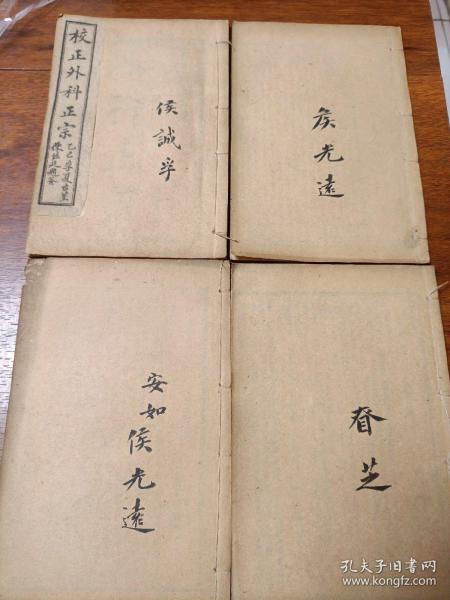 校正外科正宗
乙巳年夏
侯誠孚
侯光遠
安如侯光遠
春芝
孔夫子旧书网
www.kongfz.com